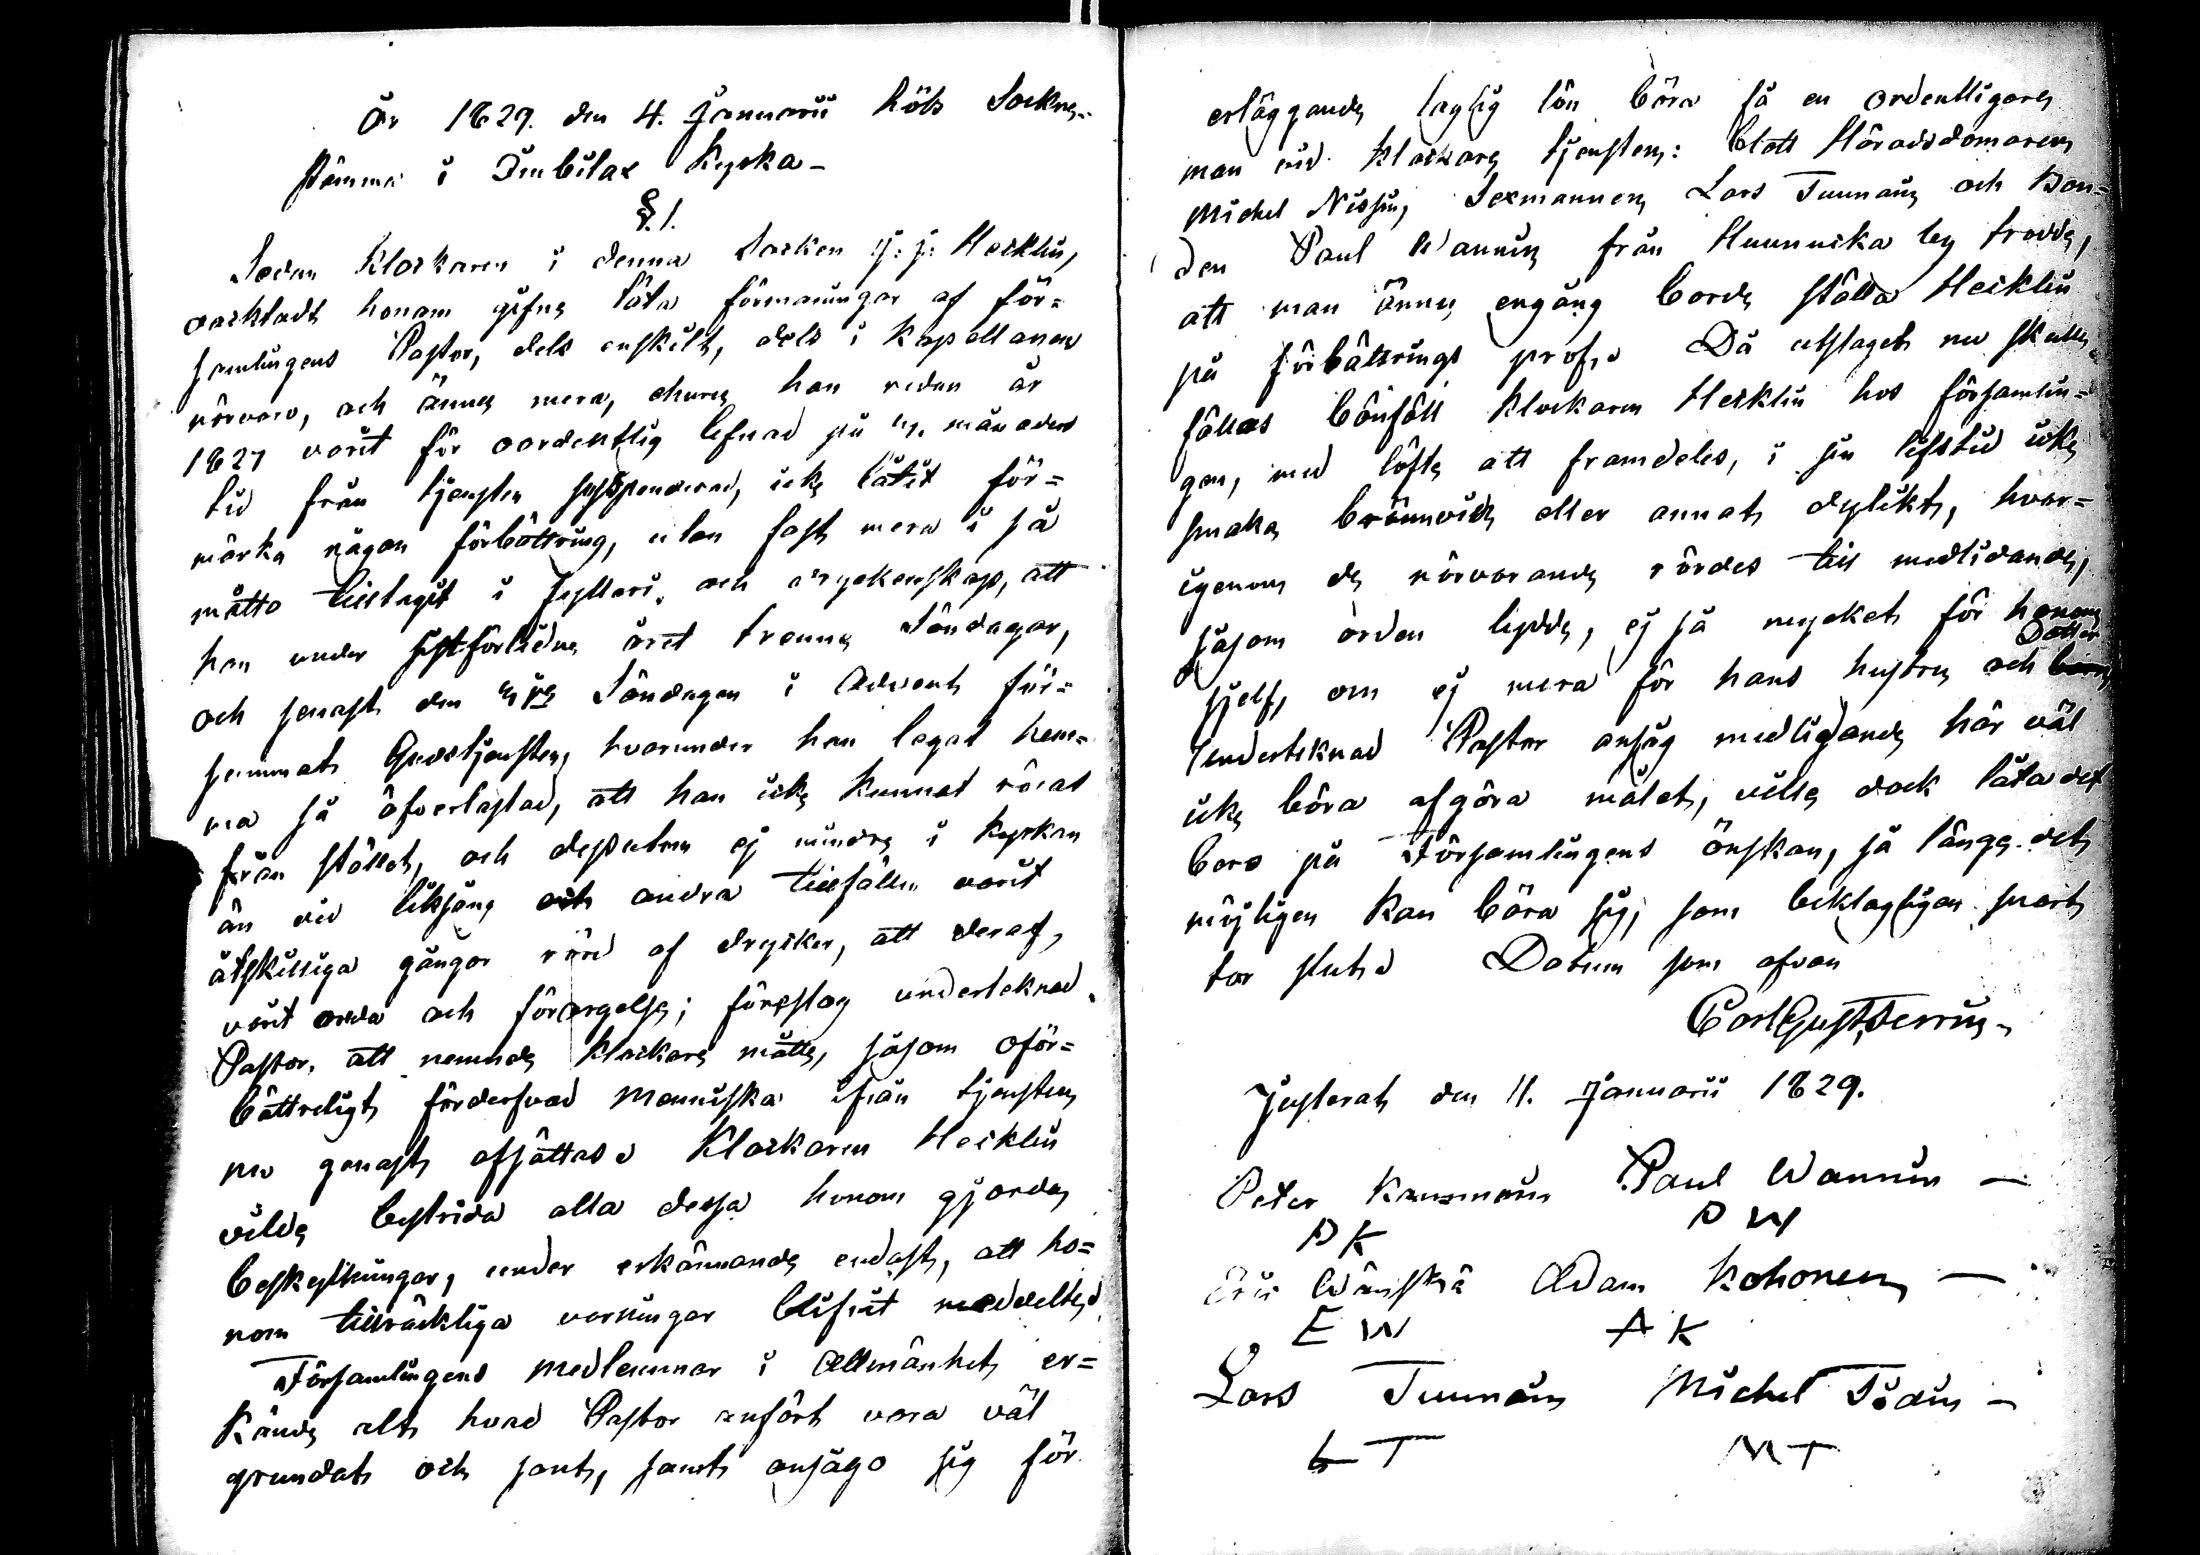 År 1829. den 4. Januarii höls Sockne-
stämma i Imbilax Kyrka -
§.1.
Sedan Klockaren i denna Socken J: J: Hecklin,
oacktadt honom gifne täta förmaningar af för=
samlingens Pastor, dels enskilt, dels i Kapellanens
närvaro, och ännu mera, ehuru han redan år
1827 varit för oordentlig lefnad på en månads
tid från tjensten suspenderad, icke låtit för=
märka någon förbättring, utan fast mera i så
måtto tilltagit i fylleri, och dryckenskap, att
han under sistförledne året trenne Söndagar,
och senast den Söndagen i Advent för=
summat Gudstjensten, hvarunder han legat hem=
ma så öfverlastad, att han icke kunnat röras
från stället, och dessutom ej mindre i kyrkan
än vid liksång och andra tillfällen varit
åtskilliga gångor rörd af drycker, att deraf,
varit oreda och förargelse; föreslog undertecknad
Pastor, att nemnde Klockare måtte, såsom oför=
bätterligt förderfvad menniska ifrån tjensten
nu genast afsättas. Klockaren Hecklin
ville bestrida alla dessa honom gjorde
beskyllningar, under erkännande endast, att ho=
nom tillräckliga varningar blifvit meddelte.
Församlingens medlemmar i Allmänhet er=
kände alt hvad Pastor anfört vara väl
grundat och sant, samt ansågo sig för
erläggande laglig lön böra få en ordentligare
man vid klockare tjensten: blott Häradsdomaren
Michel Nissin, Sexmannen Lars Tuunain och Bon=
den Paul Wannin från Huunuka by trodde,
att man ännu engång borde ställa Hecklin
på förbättrings prof. Då utslaget nu skulle
fällas bönföll Klockaren Hecklin hos församlin=
gen, med löfte att framdeles, i sin lifstid icke
smaka brännvin eller annat dylikt, hvar=
igenom de närvarande rördes till medlidande,
såsom orden lydde, ej så mycket för honom
sjelf, om ej mera för hans hustru och barn Dotter
Undertecknad Pastor ansåg medlidande här väl
icke böra afgöra målet, ville dock låta det
bero på Församlingens önskan, så länge det
möjligen kan bära sig, som beklagligen snart
tar slut. Datum som ofvan
Carl Gust. Ferrin
Justerat den 11. Januarii 1829.
Peter Kausmain Paul Wannin -
PK PW
Eric Wänskä Adam Kohonen -
EW AK
Lars Tuunain Michel Tsain -
LT MT